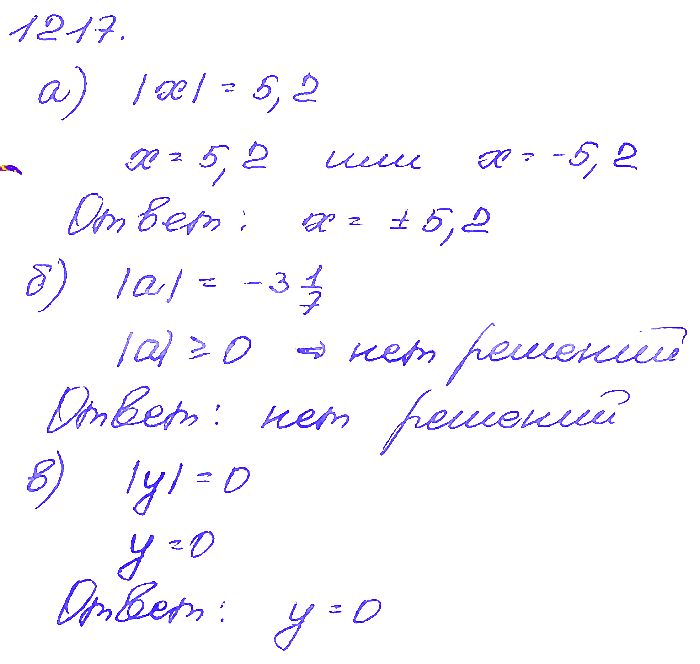 1217.
а) |x| = 5,2
x = 5,2 или x = -5,2
Ответ: x = ± 5,2
б) |a| = -3 1/7
|a| ≥ 0 ⇒ нет решений
Ответ: нет решений
в) |y| = 0
y = 0
Ответ: y = 0